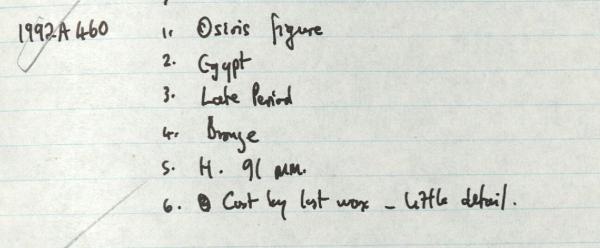 1992.A 460 1. Osiris figure
2. Egypt
3. Late Period
4. Bronze
5. H. 91 mm.
6. Cast by lost wax - little detail.